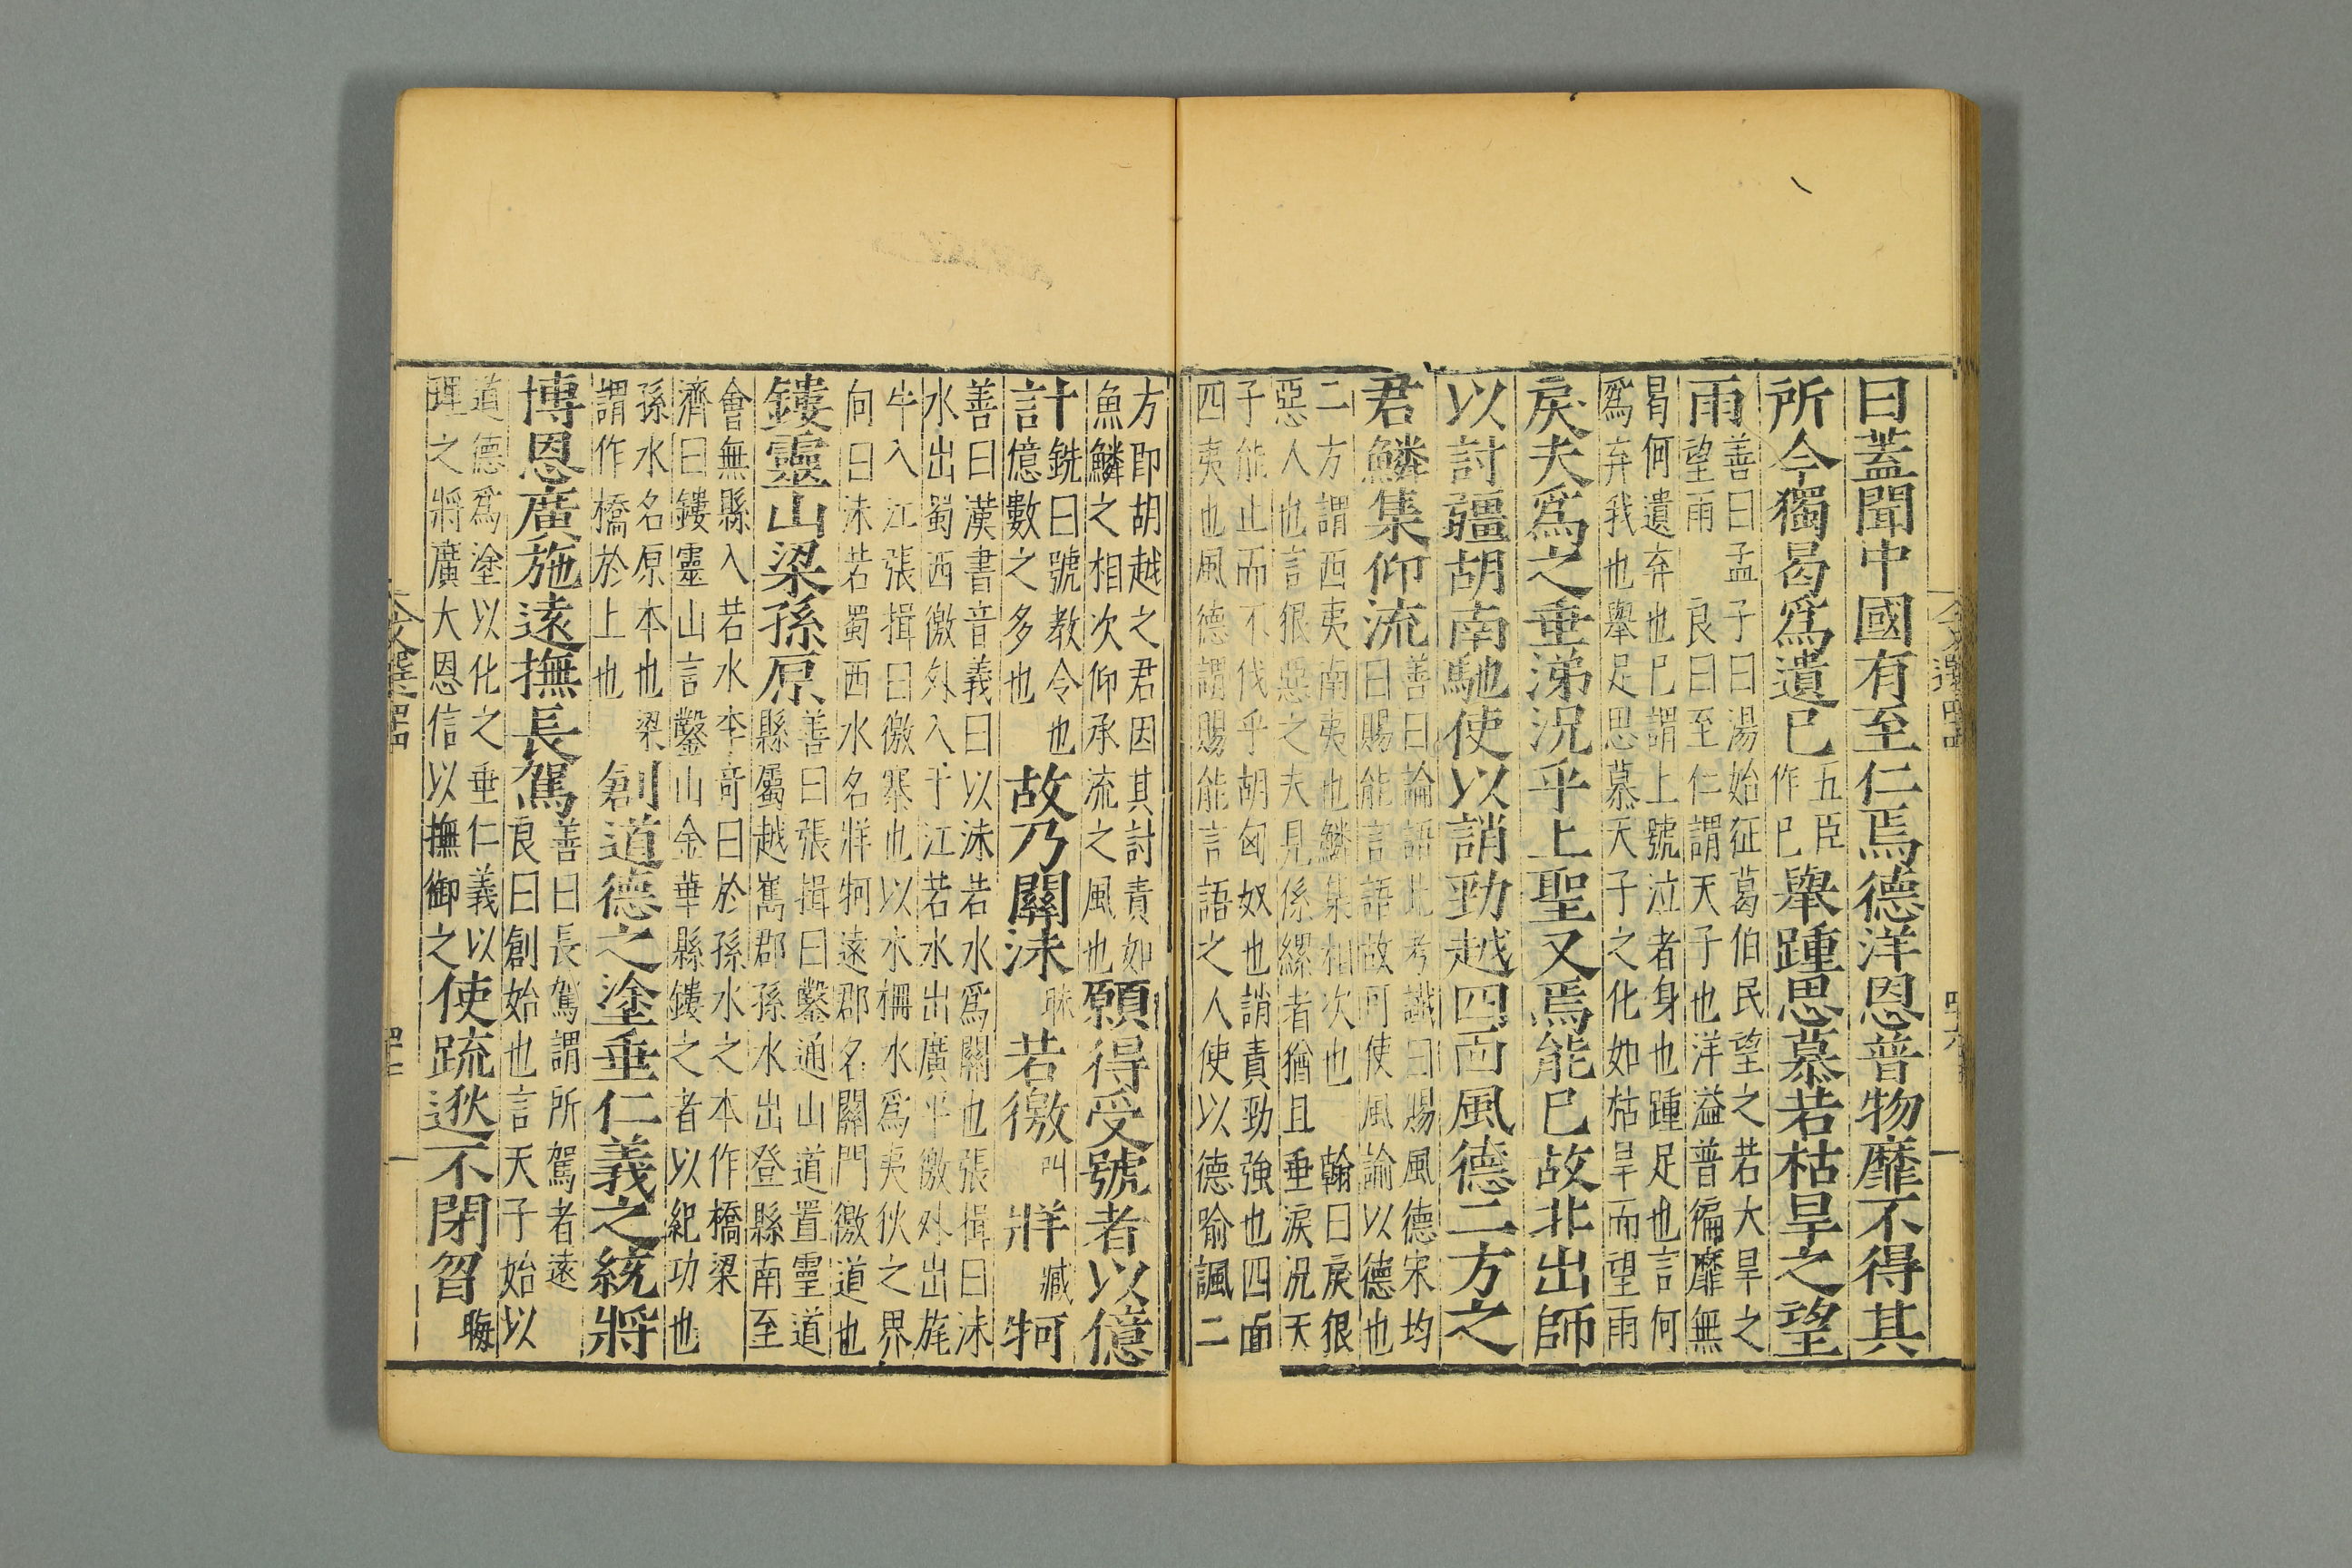 曰蓋聞中國有至仁焉德洋恩普物靡不得其
所今獨曷爲遺已五臣作巳舉踵思慕若枯旱之望
雨善曰孟子曰湯始征葛伯民望之若大旱之望雨　良曰至仁謂天子也洋溢普徧靡無
曷何遺弃也巳謂上號泣者身也踵足也言何爲弃我也舉足思慕天子之化如枯旱而望雨
戾夫爲之垂涕況乎上聖又焉能巳故北出師
以討疆胡南馳使以誚勁越四面風德二方之
君鱗集仰流善曰論語比考讖曰賜風德宋均曰賜能言語故可使風諭以德也
二方謂西夷南夷也鱗集相次也　翰曰戾很惡人也言很惡之夫見係縲者猶且垂淚況天
子能止而不伐乎胡匈奴也誚責勁強也四面四夷也風德謂賜能言語之人使以德喻諷二
方即胡越之君因其討責如魚鱗之相次仰承流之風也願得受號者以億
計銑曰號教令也計億數之多也故乃關沬昧若徼叫牂臧牁
善曰漢書音義曰以沬若水爲關也張揖曰沬水出蜀西徼外入于江若水出廣平徼外出旄
牛入江張揖曰徼塞也以木柵水爲夷狄之界向曰沬若蜀西水名牂牁遠郡名關門徼道也
鏤靈山梁孫原善曰張揖曰鑿通山道置靈道縣屬越嶲郡孫水出登縣南至
會無縣入若水李竒曰於孫水之本作橋梁濟曰鏤靈山言鑿山金華縣鏤之者以紀功也
孫水名原本也梁謂作橋於上也創道德之塗垂仁義之統將
博恩廣施遠撫長駕善曰長駕謂所駕者遠良曰創始也言天子始以
道德爲塗以化之垂仁義以理之將廣大恩信以撫御之使疏逖不閉曶晦